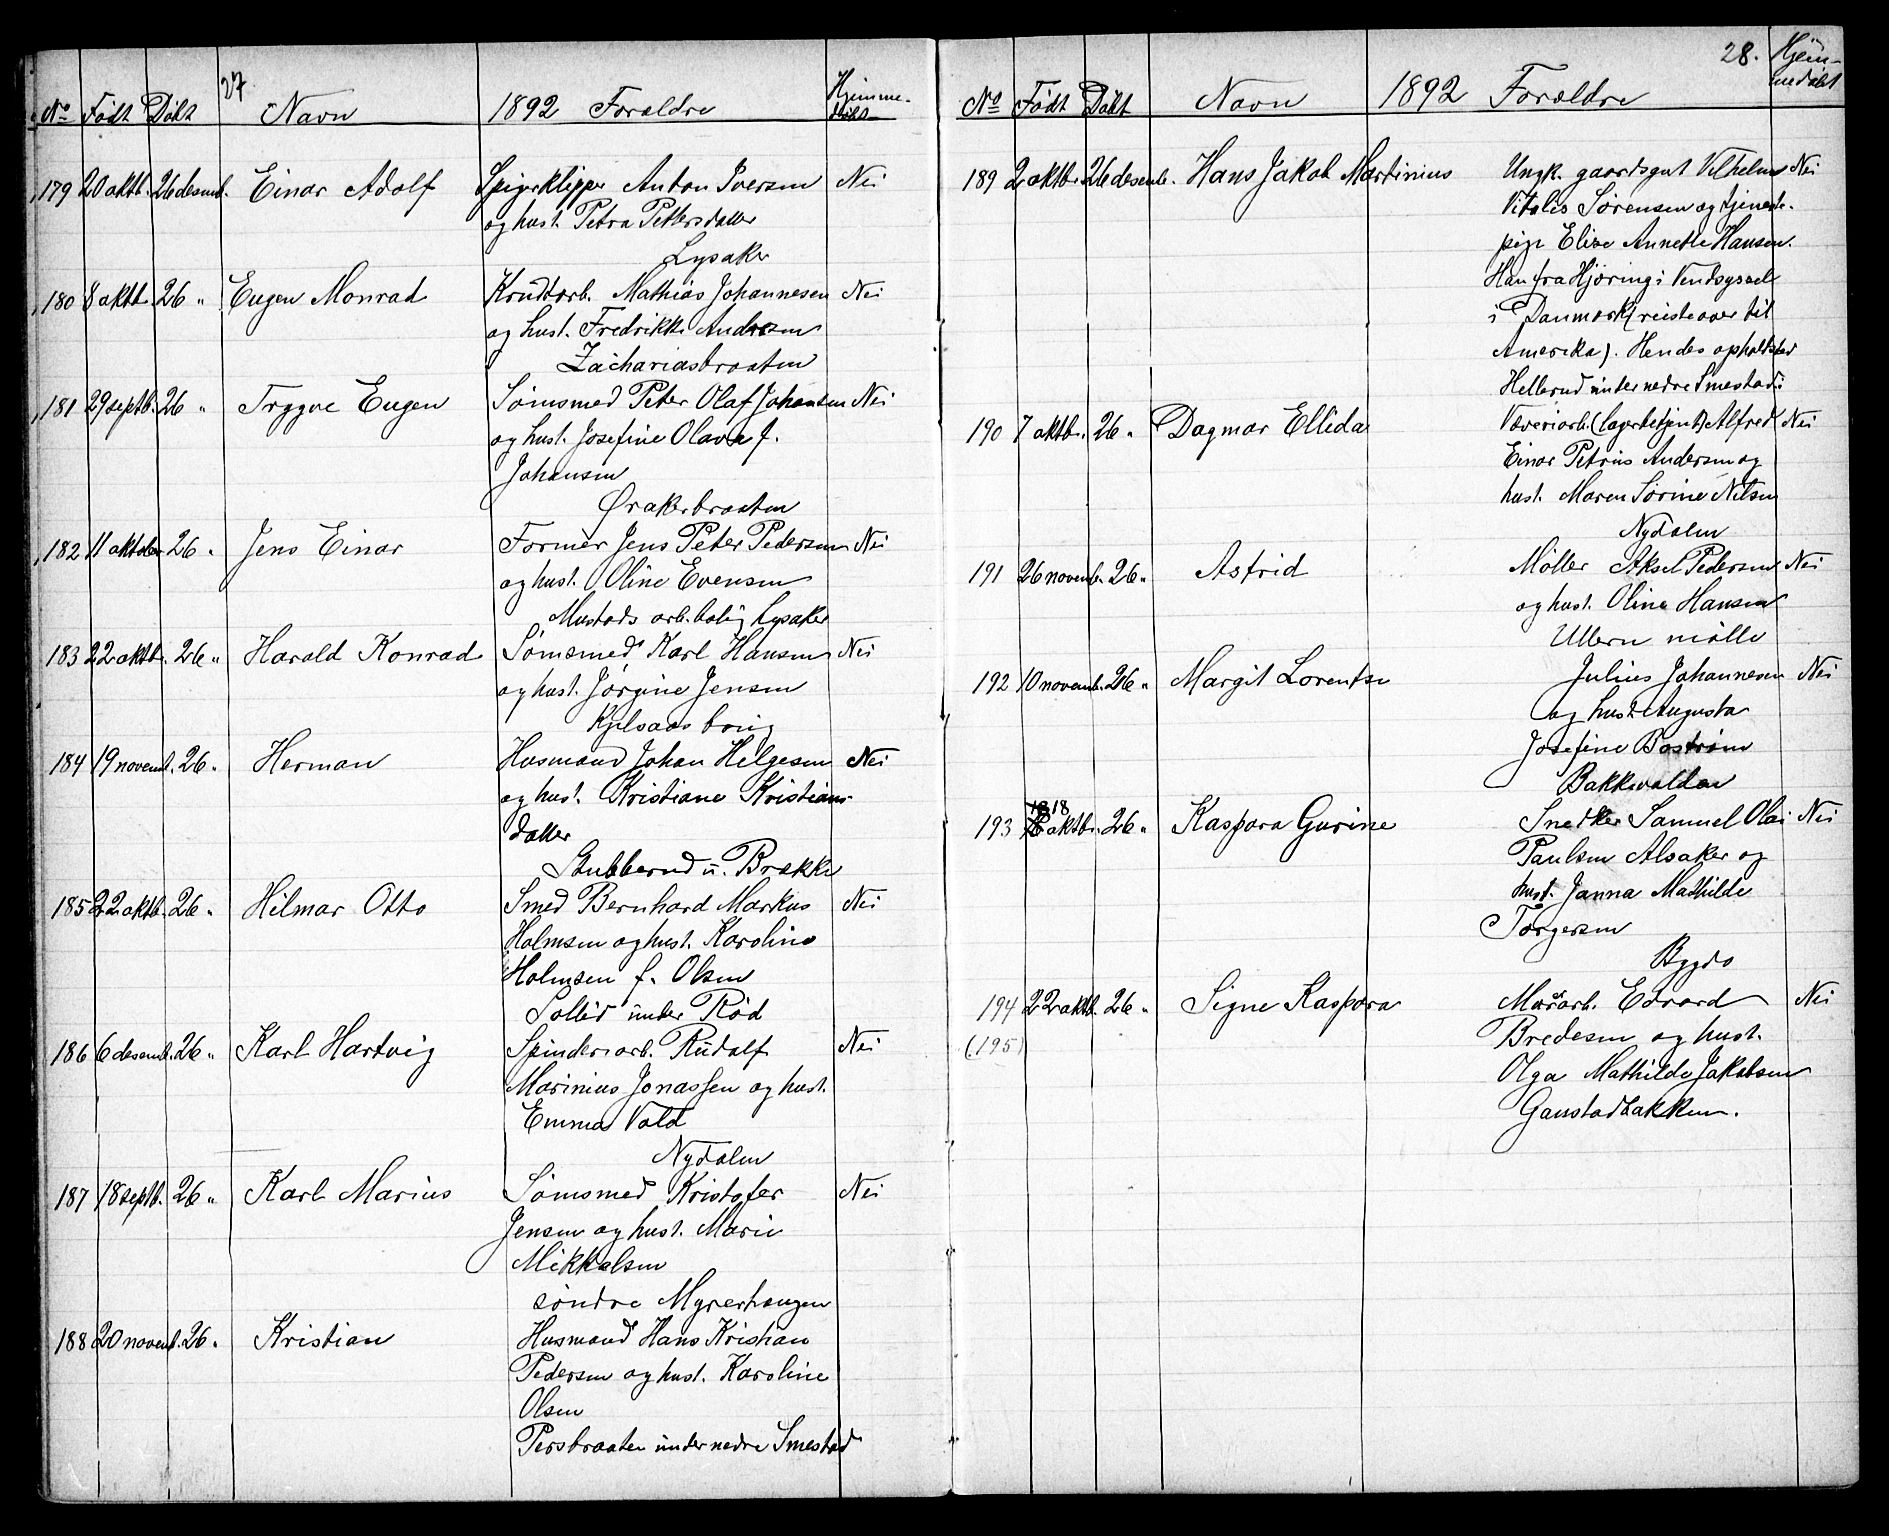 27
No Født Døbt Navn 1892 Forældre Hjemme-
døbt
179 20 oktb. 26 desemb. Einar Adolf Spigerklipper Anton Iversen Nei
og hust. Petra Pettersdatter
Lysaker
180 8 oktb. 26 " Eugen Monrad Krudtarb. Mathias Johannesen Nei
og hust. Fredrikke Andersen
Zachariasbraaten
181 29 septb. 26 " Trygve Eugen Sømsmed Peter Olaf Johansen Nei
og hust. Josefine Olava f.
Johansen
Ørakerbraaten
182 11 oktober 26 " Jens Einar Former Jens Peter Pedersen Nei
og hust. Oline Evensen
Mustads arb.bolig Lysaker
183 22 oktb. 26 " Harald Konrad Sømsmed Karl Hansen Nei
og hust. Jørgine Jensen
Kjelsaas brug
184 19 novemb. 26 " Herman Husmand Johan Helgesen Nei
og hust. Kristiane Kristians-
datter
Stubberud u. Brekke
185 22 oktb. 26 " Hilmar Otto Smed Bernhard Markus Nei
Holmsen og hust. Karoline
Holmsen f. Olsen
Solli under Röd
186 6 desemb. 26 " Karl Hartvig Spinderiarb. Rudolf Nei
Marinius Jonassen og hust.
Emma Vold
Nydalen
187 18 septb. 26 " Karl Marius Sømsmed Kristofer Nei
Jensen og hust. Marie
Mikkelsen
söndre Myrerhaugen
188 20 novemb. 26 " Kristian Husmand Hans Kristian
Pedersen og hust. Karoline
Olsen
Persbraaten under nedre Smestad
28.
No Født Døbt Navn 1892 Forældre Hjem-
medøbt
189 2 oktb. 26 desemb. Hans Jakob Martinius Ungk. gaardsgut Vilhelm Nei
Vitalis Sørensen og tjeneste-
pige Elise Annette Hansen.
Han fra Hjøring i Vendsyssel
i Danmark (reiste over til
Amerika). Hendes opholdsted
Hellerud under nedre Smestad.
190 7 oktb. 26 " Dagmar Ellida Væveriarb. (lagerbetjent) Alfred Nei
Einar Petrius Andersen og
hust. Maren Sørine Nilsen
Nydalen
191 26 novemb. 26 " Astrid Möller Aksel Pedersen Nei
og hust. Oline Hansen
Ullern mölle
192 10 novemb. 26 " Margit Lorentse Julius Johannesen Nei
og hust. Augusta
Josefine Boström
Bakkevolden
18
193 oktb. 26 " Kaspara Gurine Snedker Samuel Olai Nei
Paulsen Alsaker og
hust. Janna Mathilde
Torgersen
Bygdø
194 22 oktb. 26 " Signe Kaspara Murarb. Edvard Nei
(195) Bredesen og hust.
Olga Mathilde Jakobsen
Gaustadbakken.